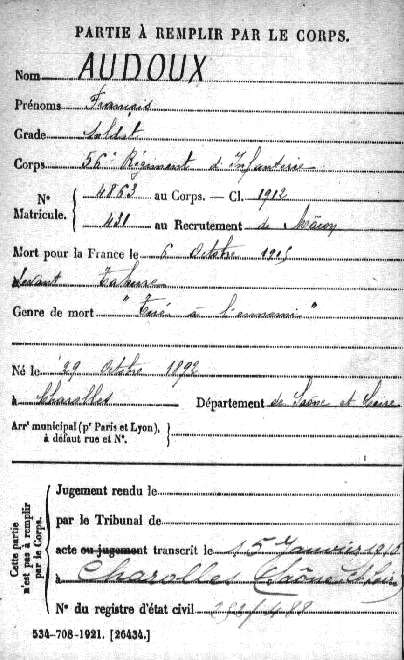 PARTIE À REMPLIR PAR LE CORPS.
Nom AUDOUX
Prénoms François
Grade Soldat
Corps 56e Régiment d'Infanterie
N° Matricule. { 4863 au Corps. — Cl. 1912
431 au Recrutement de Mâcon
Mort pour la France le 6 Octobre 1915
devant Tahure
Genre de mort "Tué à l'ennemi"
Né le 29 Octobre 1892
à Charolles Département de Saône et Loire
Arr¹ municipal (pʳ Paris et Lyon), à défaut rue et N°.
Cette partie n'est pas à remplir par le Corps.
Jugement rendu le
par le Tribunal de
acte ou jugement transcrit le 15 Janvier
à Charolles (Saône et Loire)
N° du registre d'état civil
534-708-1921. [26434.]